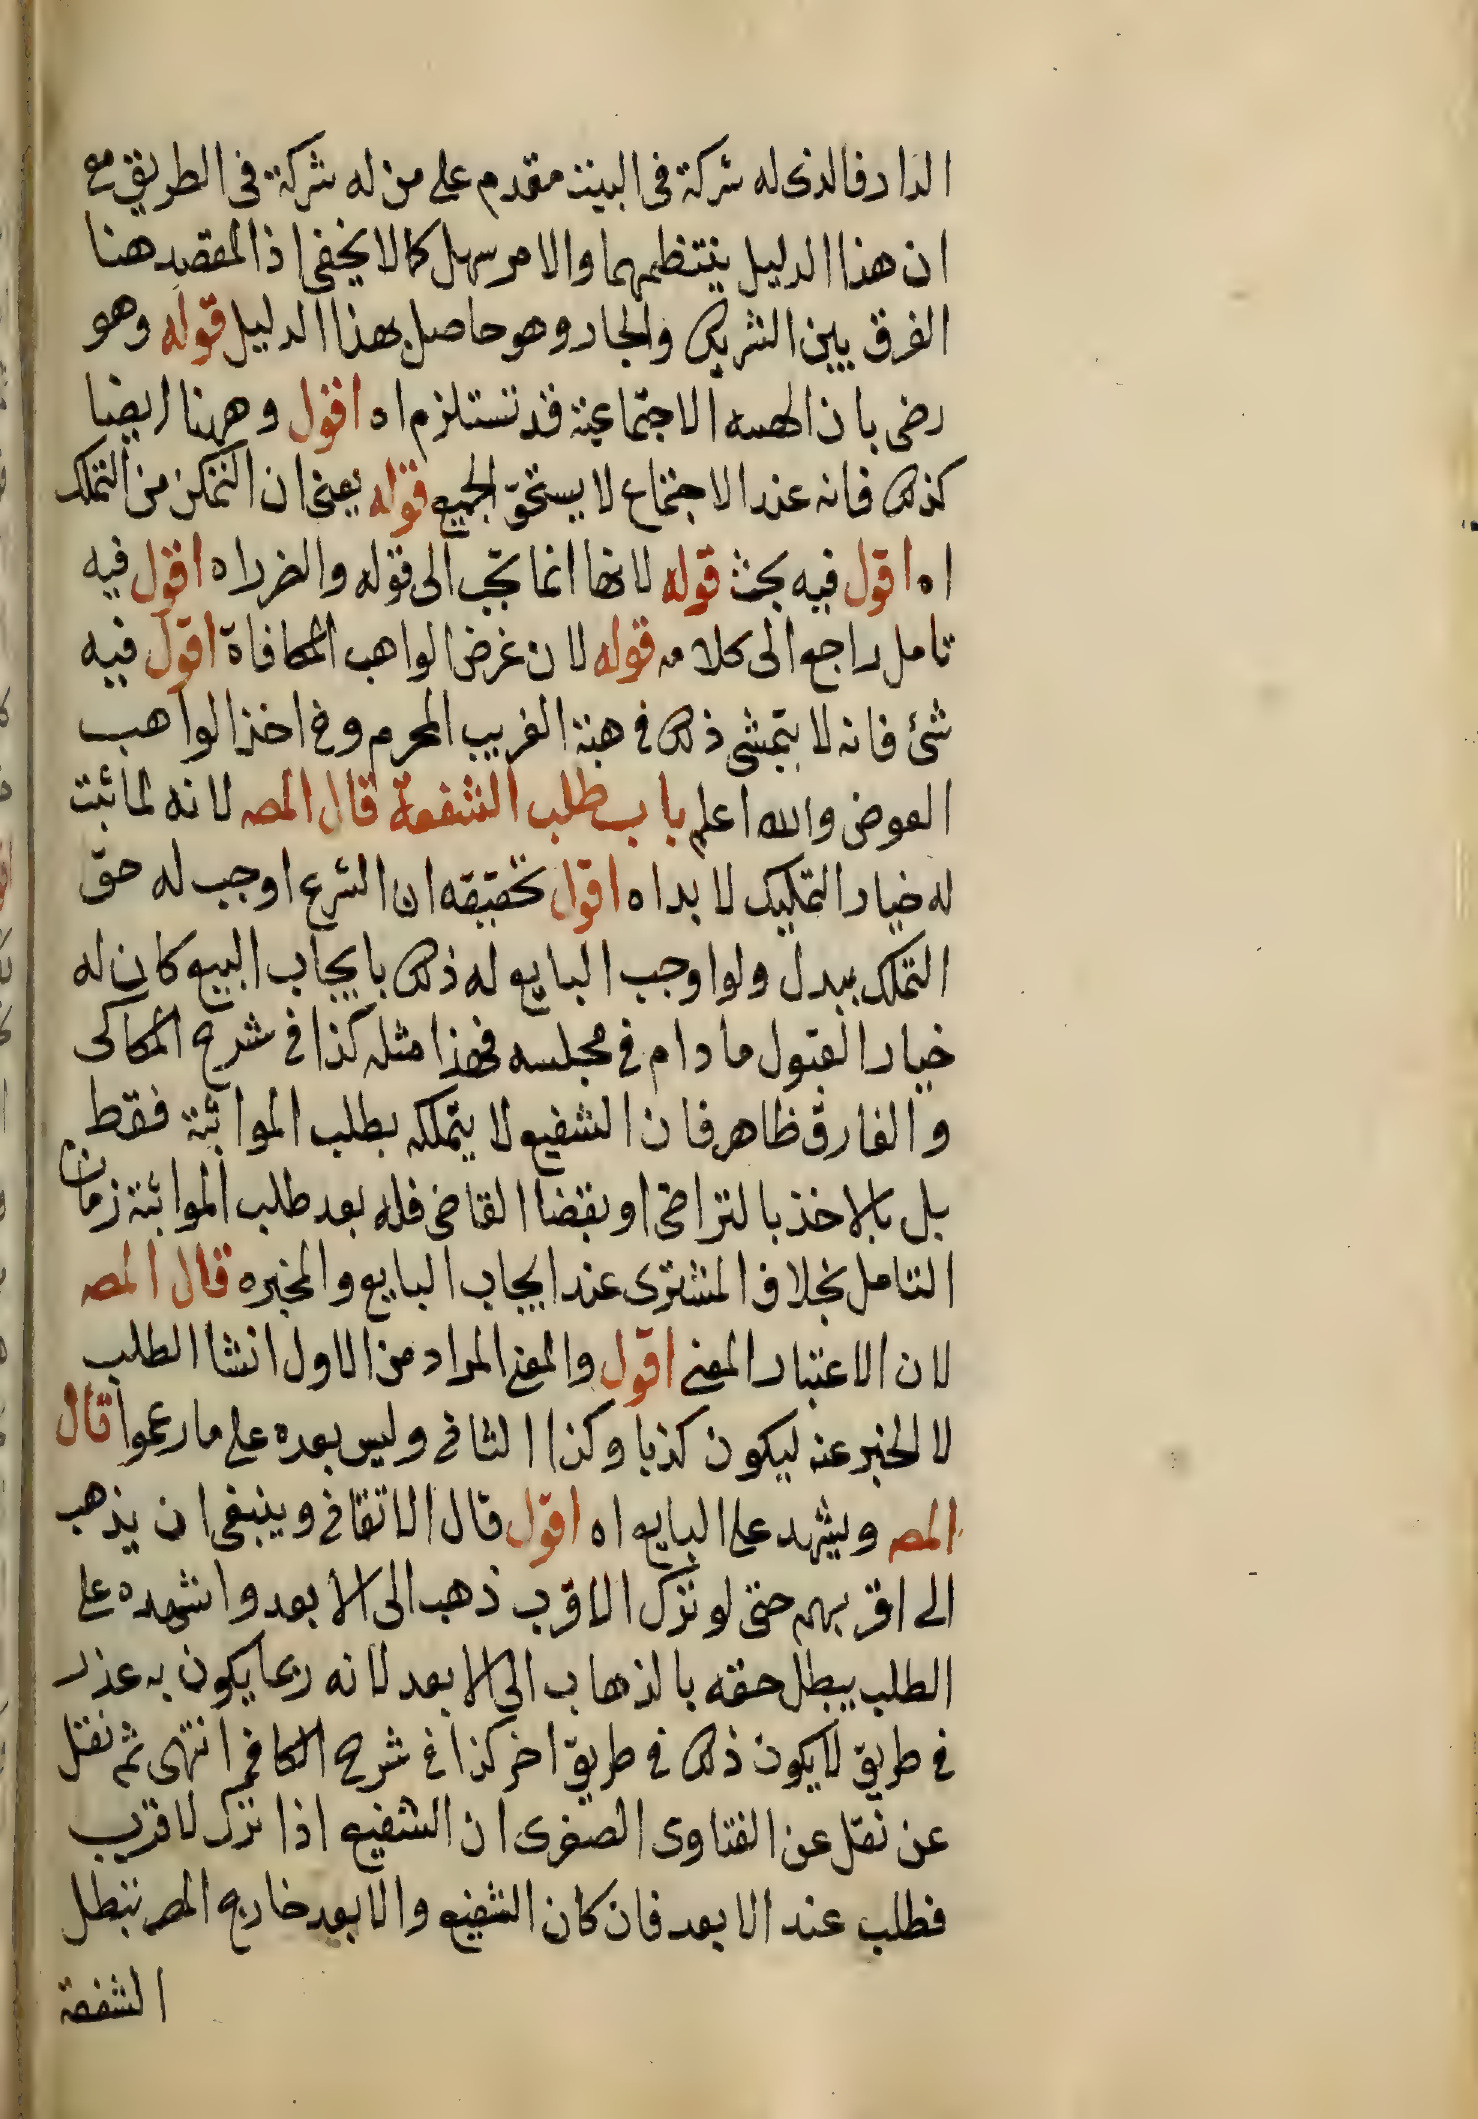 الدار فالذى له شركة فى البيت مقدم على من له شركة فى الطريق مع
ان هذا الدليل ينتظمهما والامر سهل كما لا يخفى اذ المقصد هنا
الفرق بين الشريك والجار وهو حاصل بهذا الدليل قوله وهو
رضى بان الهيئه الاجتماعية قد تستلزم اه اقول وههنا ايضا
كذلك فانه عند الاجتماع لا يستحق الجميع قوله يعنى ان التمكن من التملك
اه اقول فيه بحث قوله لانها انما تجب الى قوله والضرر اه اقول فيه
تامل راجع الى كلامه قوله لان غرض الواهب المكافاة اقول فيه
شئ فانه لا يتمشى ذلك فى هبة القريب المحرم وفى اخذ الواهب
العوض والله اعلم باب طلب الشفعة قال المصـ لانه لما ثبت
له خيار التمليك لا بد اه اقول تحقيقه ان الشرع اوجب له حق
التملك ببدل ولو اوجب البايع له ذلك بايجاب البيع كان له
خيار القبول مادام فى مجلسه فهذا مثله كذا فى شرح الكاكى
والفارق ظاهر فان الشفيع لا يتملكه بطلب المواثبة فقط
بل بالاخذ بالتراضى او بقضا القاضى فله بعد طلب المواثبة زمان
التامل بخلاف المشترى عند ايجاب البايع والمخيره قال المصـ
لان الاعتبار المعنى اقول والمعنى المراد من الاول انشا الطلب
لا الخبر عنه ليكون كذبا وكذا الثانى وليس بعده على ما زعموا قال
المصـ ويشهد على البايع اه اقول قال الاتقانى وينبغى ان يذهب
الى اقربهم حتى لو ترك الاقرب ذهب الى الابعد واشهده على
الطلب يبطل حقه بالذهاب الى الابعد لانه ربما يكون به عذر
فى طريق لا يكون ذلك فى طريق اخر كذا فى شرح الكافى انتهى ثم نقل
عن نقل عن الفتاوى الصغرى ان الشفيع اذا ترك لاقرب
فطلب عند الابعد فان كان الشفيع والابعد خارج المصر تبطل
الشفعة